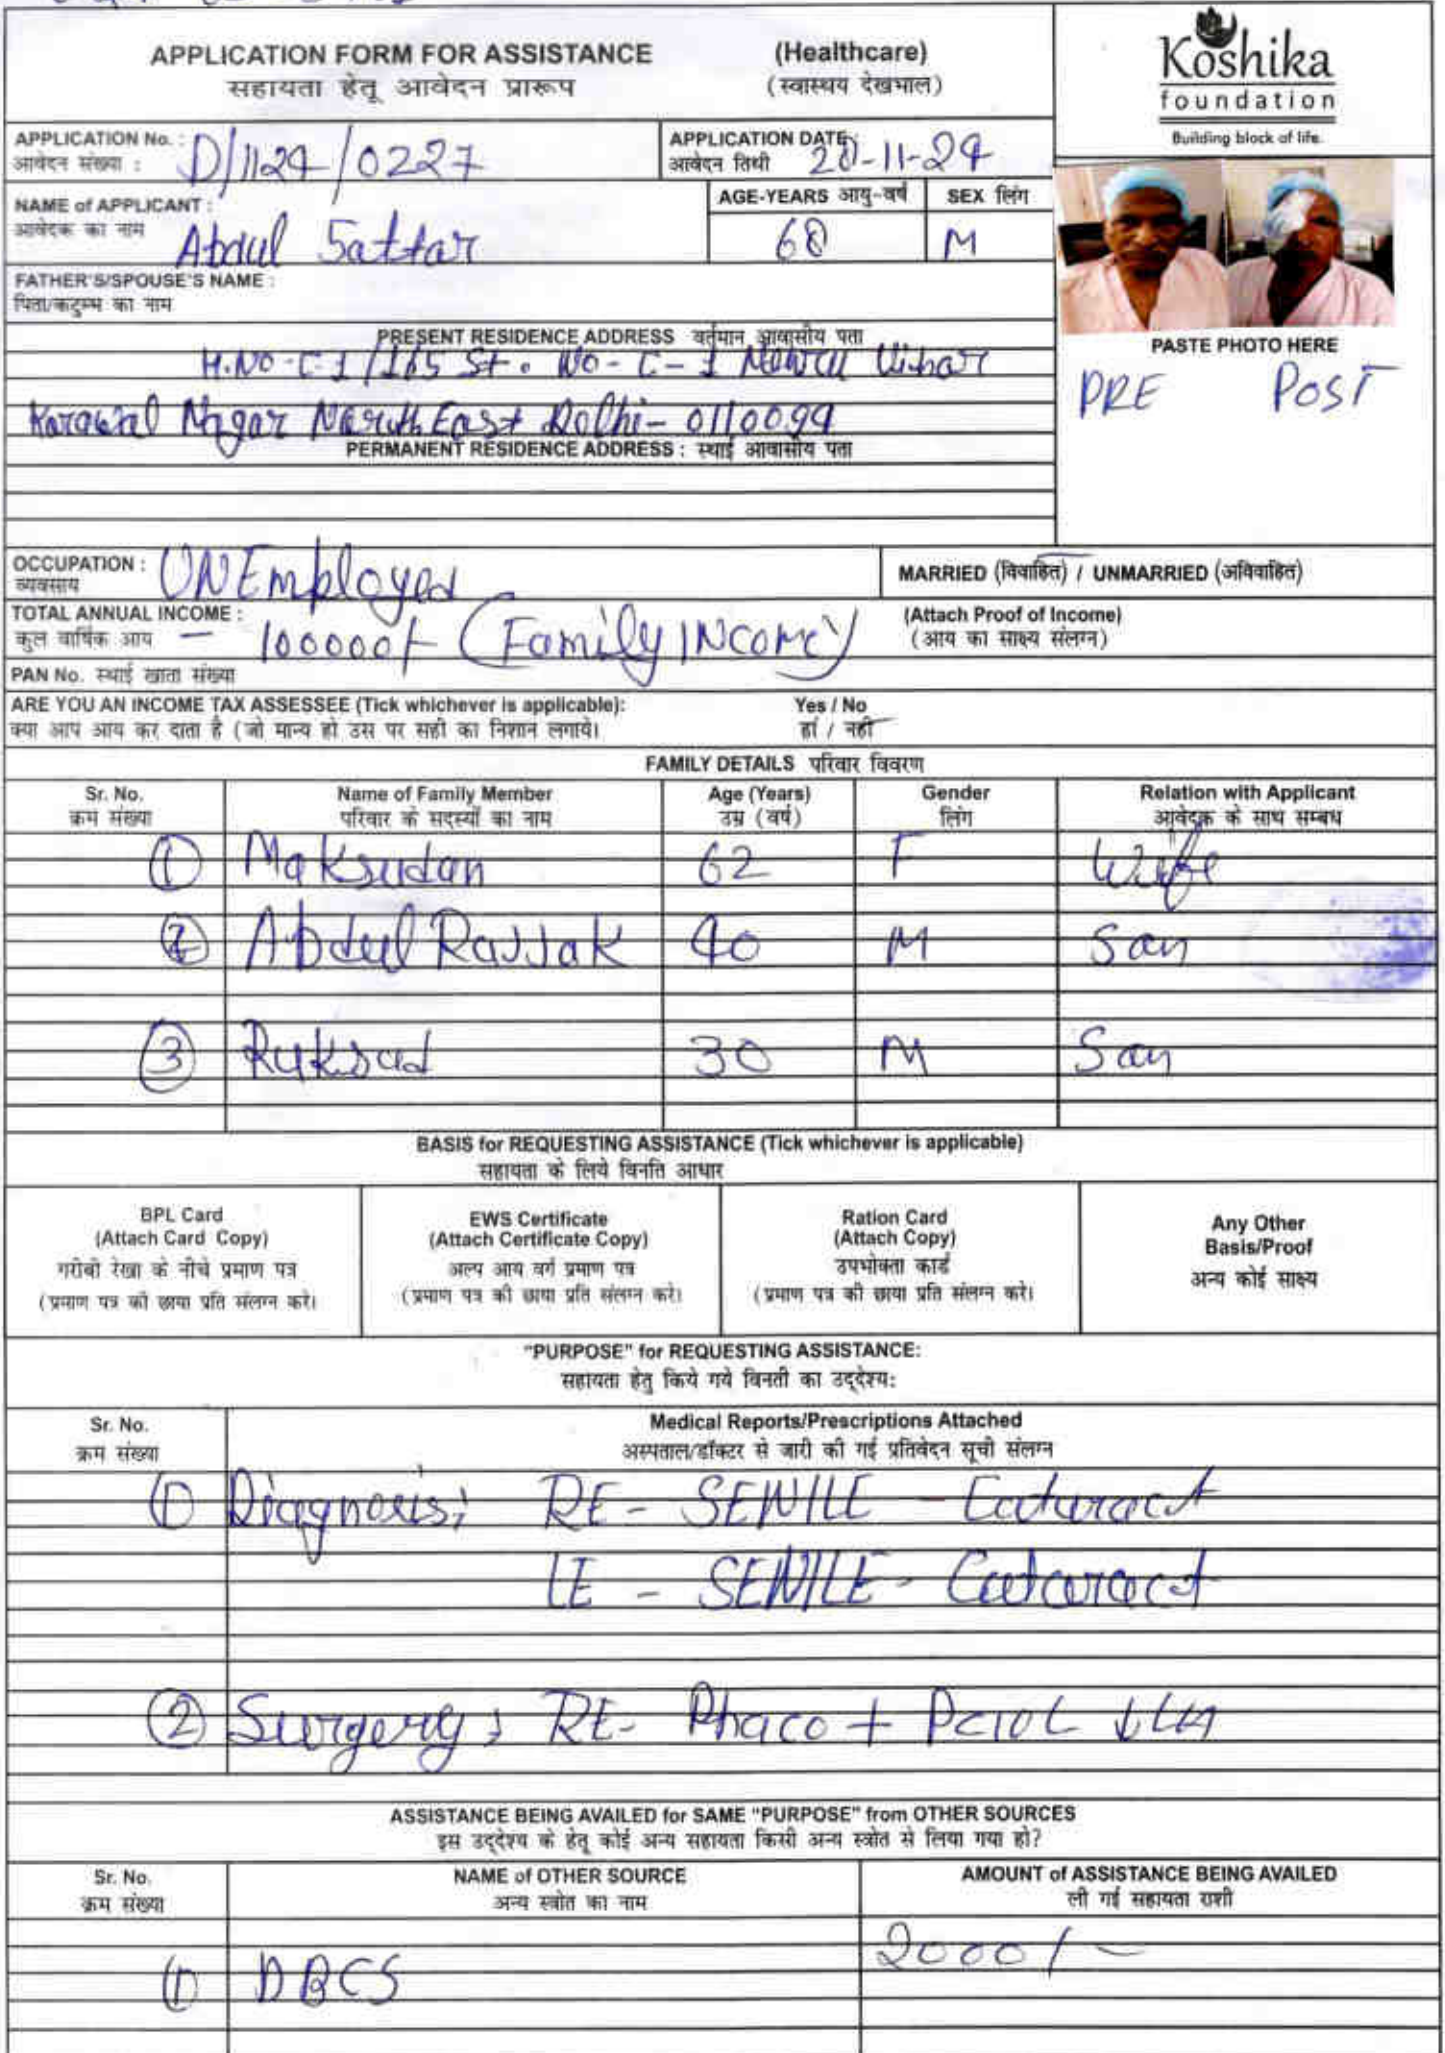 APPLICATION FORM FOR ASSISTANCE (Healthcare)
सहायता हेतू आवेदन प्रारूप (स्वास्थय देखभाल)
Koshika
foundation
Building block of life.
APPLICATION No. : D/1124/0227
आवेदन संख्या :
APPLICATION DATE : 20-11-24
आवेदन तिथी
NAME of APPLICANT :
आवेदक का नाम Abdul Sattar
AGE-YEARS आयु-वर्ष
68
SEX लिंग
M
FATHER'S/SPOUSE'S NAME :
पिता/कटुम्भ का नाम
PASTE PHOTO HERE
PRE POST
PRESENT RESIDENCE ADDRESS वर्तमान आवासीय पता
H.NO-C-1/165 St. No-C-1 Vihar
Karawal Nagar North East Delhi- 0110094
PERMANENT RESIDENCE ADDRESS : स्थाई आवासीय पता
OCCUPATION : UNEmployed
व्यवसाय
MARRIED (विवाहित) / UNMARRIED (अविवाहित)
TOTAL ANNUAL INCOME :
कुल वार्षिक आय — 100000/- (Family INCOME)
(Attach Proof of Income)
(आय का साक्ष्य संलग्न)
PAN No. स्थाई खाता संख्या
ARE YOU AN INCOME TAX ASSESSEE (Tick whichever is applicable): Yes / No
क्या आप आय कर दाता है (जो मान्य हो उस पर सही का निशान लगाये। हां / नहीं
FAMILY DETAILS परिवार विवरण
Sr. No. Name of Family Member Age (Years) Gender Relation with Applicant
क्रम संख्या परिवार के सदस्यों का नाम उम्र (वर्ष) लिंग आवेदक के साथ सम्बध
① Maksudan 62 F Wife
② Abdul Rajjak 40 M San
③ Ruksad 30 M San
BASIS for REQUESTING ASSISTANCE (Tick whichever is applicable)
सहायता के लिये विनति आधार
BPL Card
(Attach Card Copy)
गरीबी रेखा के नीचे प्रमाण पत्र
(प्रमाण पत्र की छाया प्रति संलग्न करे।
EWS Certificate
(Attach Certificate Copy)
अल्प आय वर्ग प्रमाण पत्र
(प्रमाण पत्र की छाया प्रति संलग्न करे।
Ration Card
(Attach Copy)
उपभोक्ता कार्ड
(प्रमाण पत्र की छाया प्रति संलग्न करे।
Any Other
Basis/Proof
अन्य कोई साक्ष्य
"PURPOSE" for REQUESTING ASSISTANCE:
सहायता हेतु किये गये विनती का उद्देश्य:
Sr. No. Medical Reports/Prescriptions Attached
क्रम संख्या अस्पताल/डॉक्टर से जारी की गई प्रतिवेदन सूची संलग्न
① Diagnosis; RE - SENILE - Cataract
LE - SENILE - Cataract
② Surgery; RE- Phaco + PCIOL
ASSISTANCE BEING AVAILED for SAME "PURPOSE" from OTHER SOURCES
इस उद्देश्य के हेतू कोई अन्य सहायता किसी अन्य स्त्रोत से लिया गया हो?
Sr. No. NAME of OTHER SOURCE AMOUNT of ASSISTANCE BEING AVAILED
क्रम संख्या अन्य स्त्रोत का नाम ली गई सहायता राशी
① DBCS 2000/-